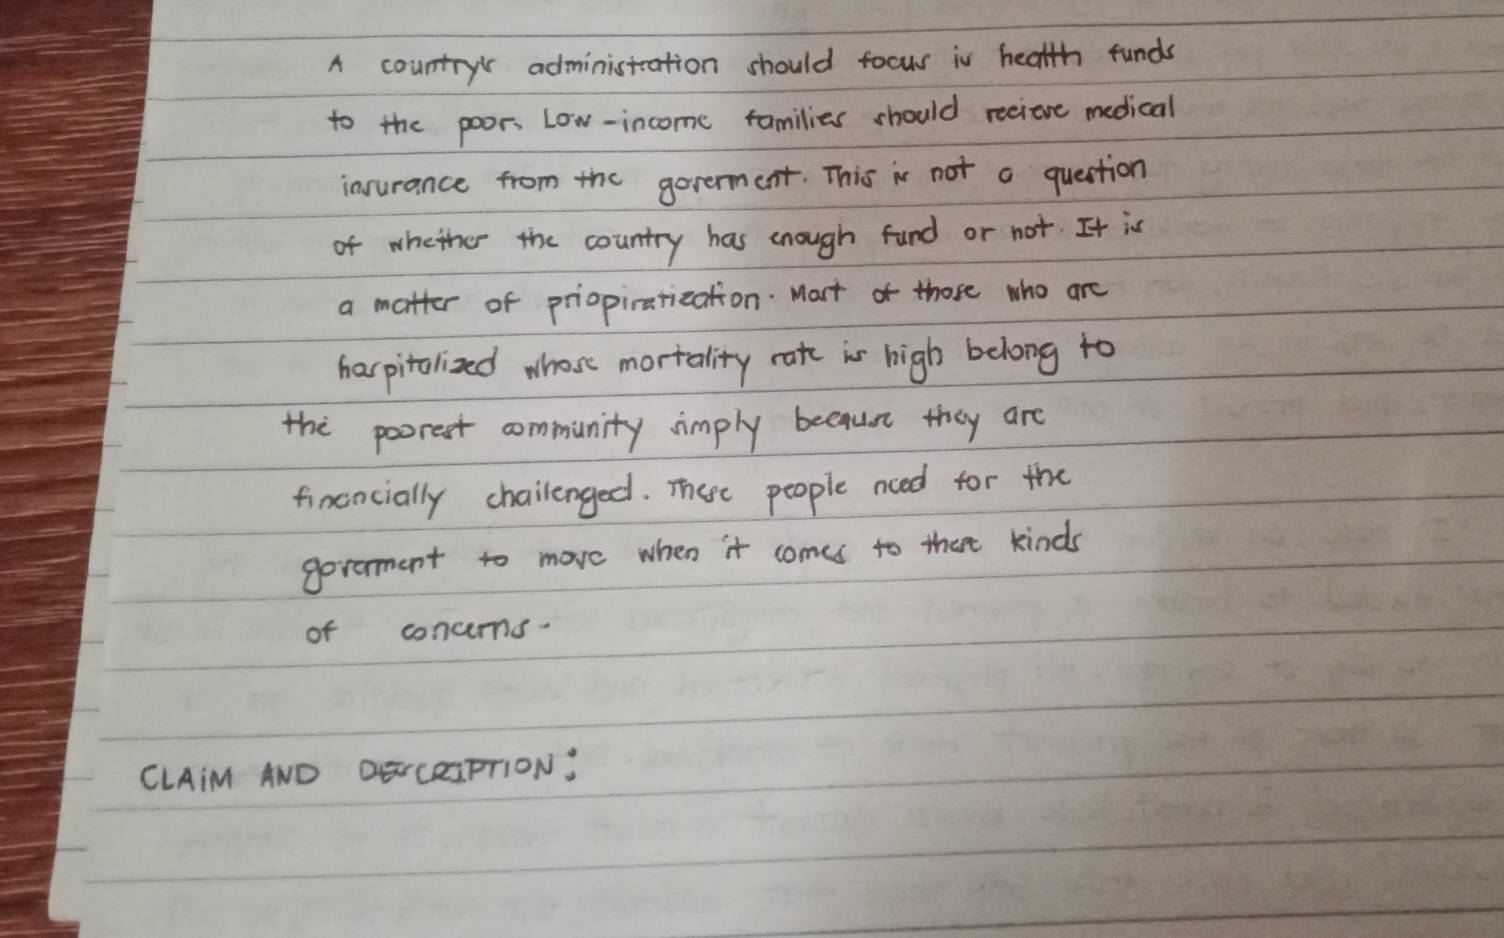 A country's administration should focus is health funds
to the poor. Low-income families should recieve medical
insurance from the goverment. This is not a question
of whether the country has enough fund or not. It is
a matter of priopiratization. Most of those who are
hospitalized whose mortality rate is high belong to
the poorest community simply because they are
financially challenged. These people need for the
goverment to move when it comes to these kinds
of concerns.
CLAIM AND DESCRIPTION: